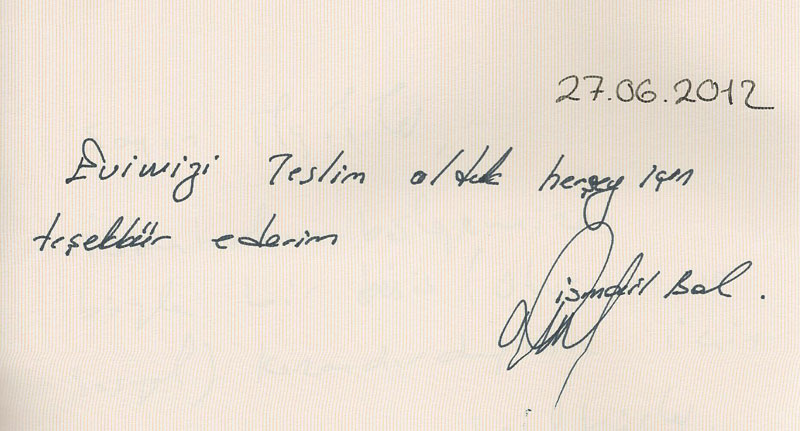 27.06.2012
Evimizi Teslim aldık herşey için
teşekkür ederim
ismail Bal.